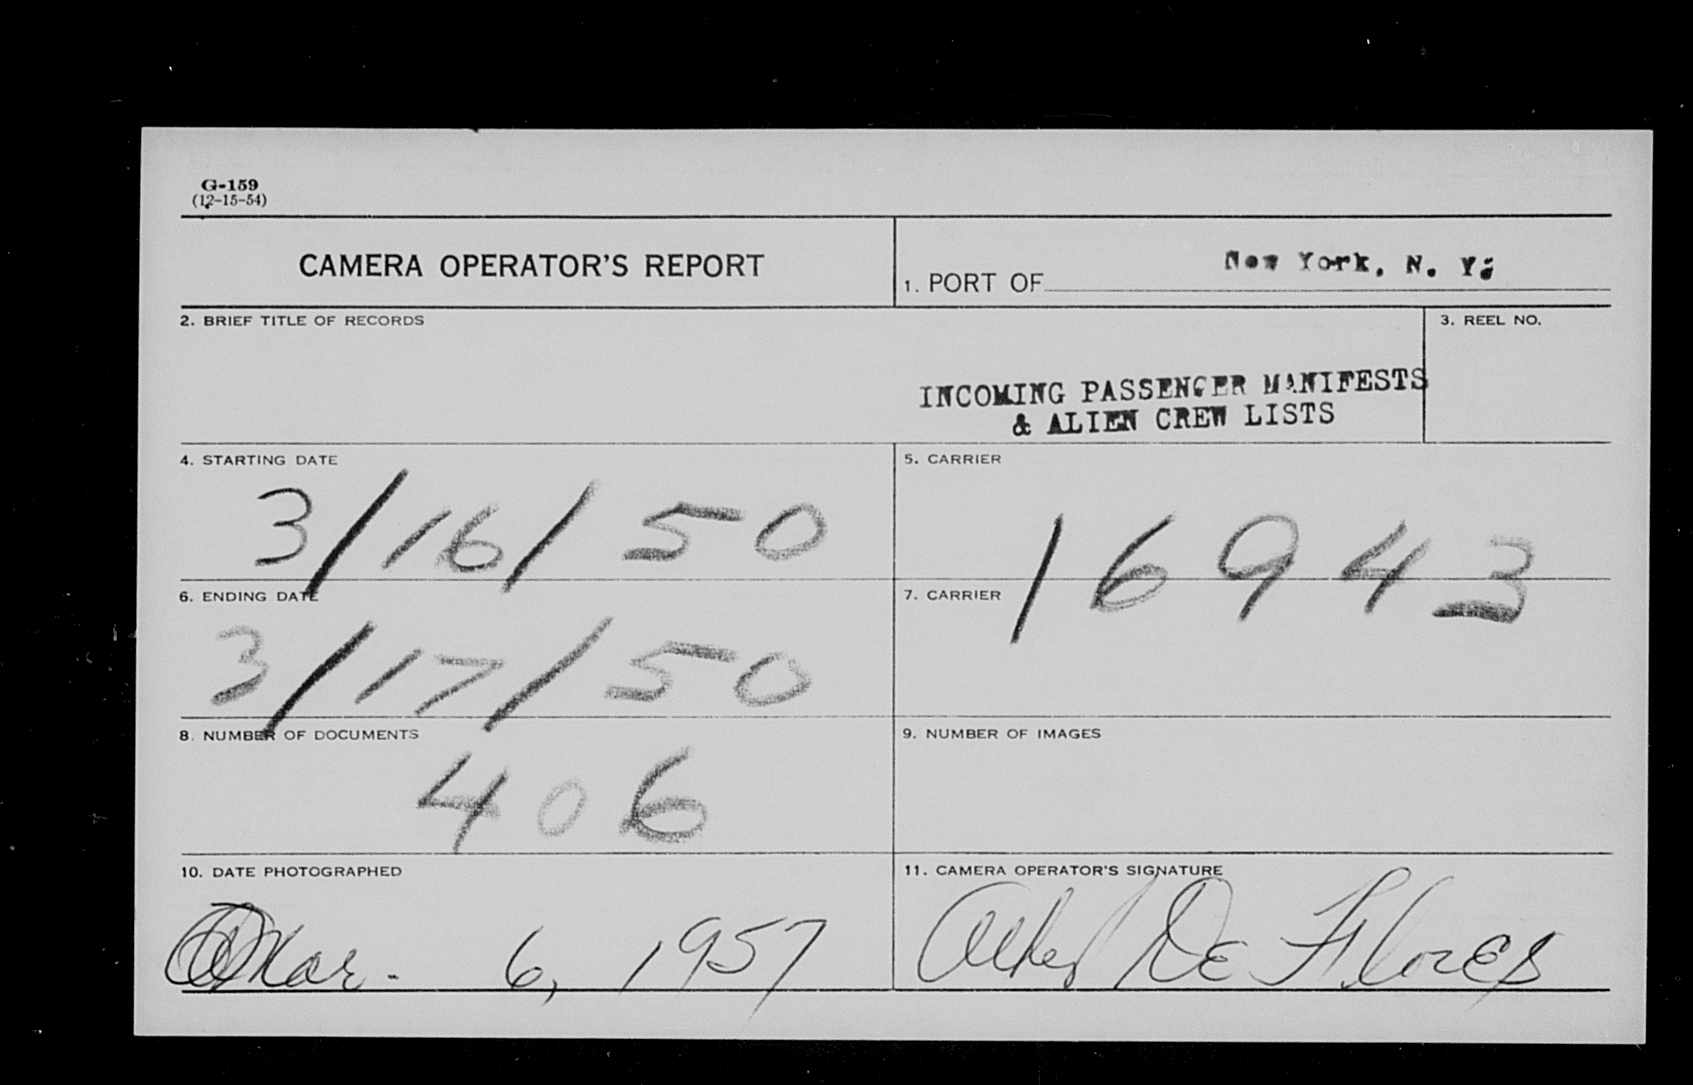 G-159
(12-15-54)
CAMERA OPERATOR'S REPORT
1. PORT OF New York, N. Y.
2. BRIEF TITLE OF RECORDS
3. REEL NO.
INCOMING PASSENGER MANIFESTS
& ALIEN CREW LISTS
4. STARTING DATE
3/16/50
5. CARRIER
16943
6. ENDING DATE
3/17/50
7. CARRIER
8. NUMBER OF DOCUMENTS
406
9. NUMBER OF IMAGES
10. DATE PHOTOGRAPHED
Mar. 6, 1957
11. CAMERA OPERATOR'S SIGNATURE
De Flores